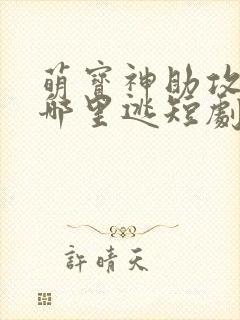 萌寶神助攻
哪里逃短劇
許晴天